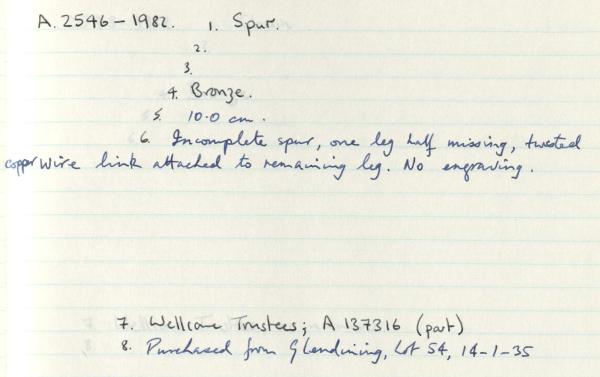 A. 2546 - 1982. 1. Spur.
2.
3.
4. Bronze.
5. 10.0 cm.
6. Incomplete spur, one leg half missing, twisted
copper wire link attached to remaining leg. No engraving.
7. Wellcome Trustees; A 137316 (part)
8. Purchased from Glendining, Lot 54, 14-1-35